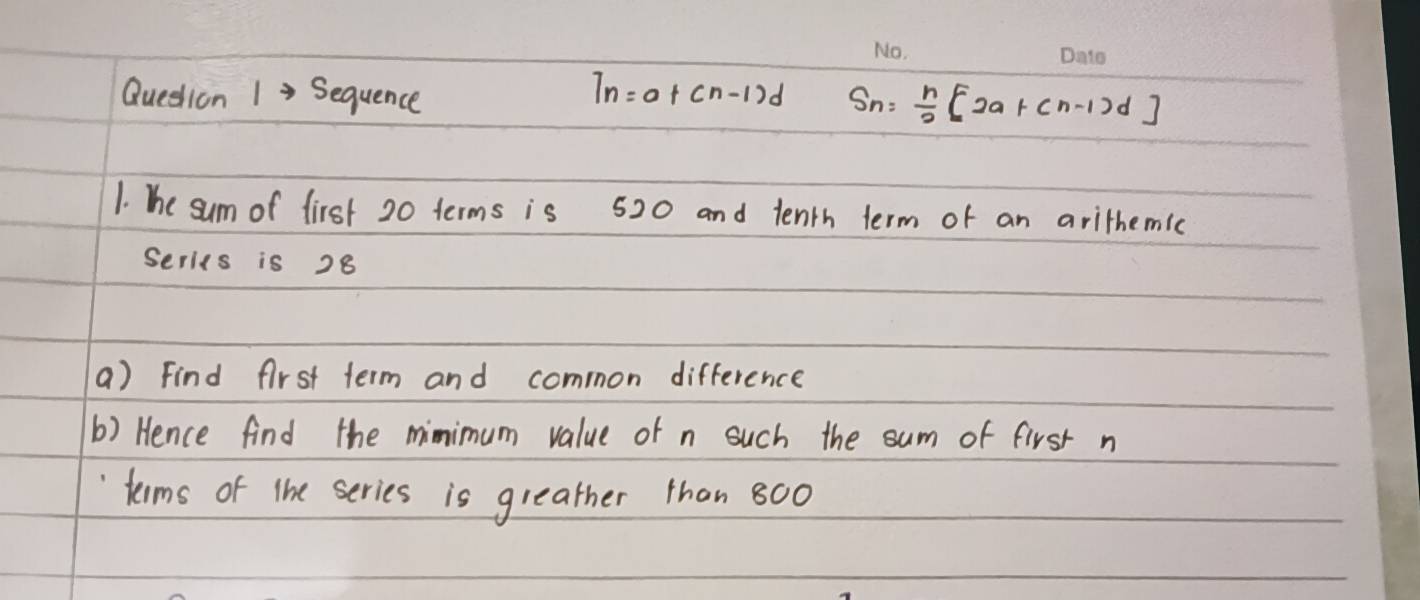 No. Date
Question 1 → Sequence Tn = a + (n-1)d Sn = n/2 [2a + (n-1)d]
1. The sum of first 20 terms is 520 and tenth term of an arithemic
Series is 28
a) Find first term and common difference
b) Hence find the minimum value of n such the sum of first n
terms of the series is greather than 800